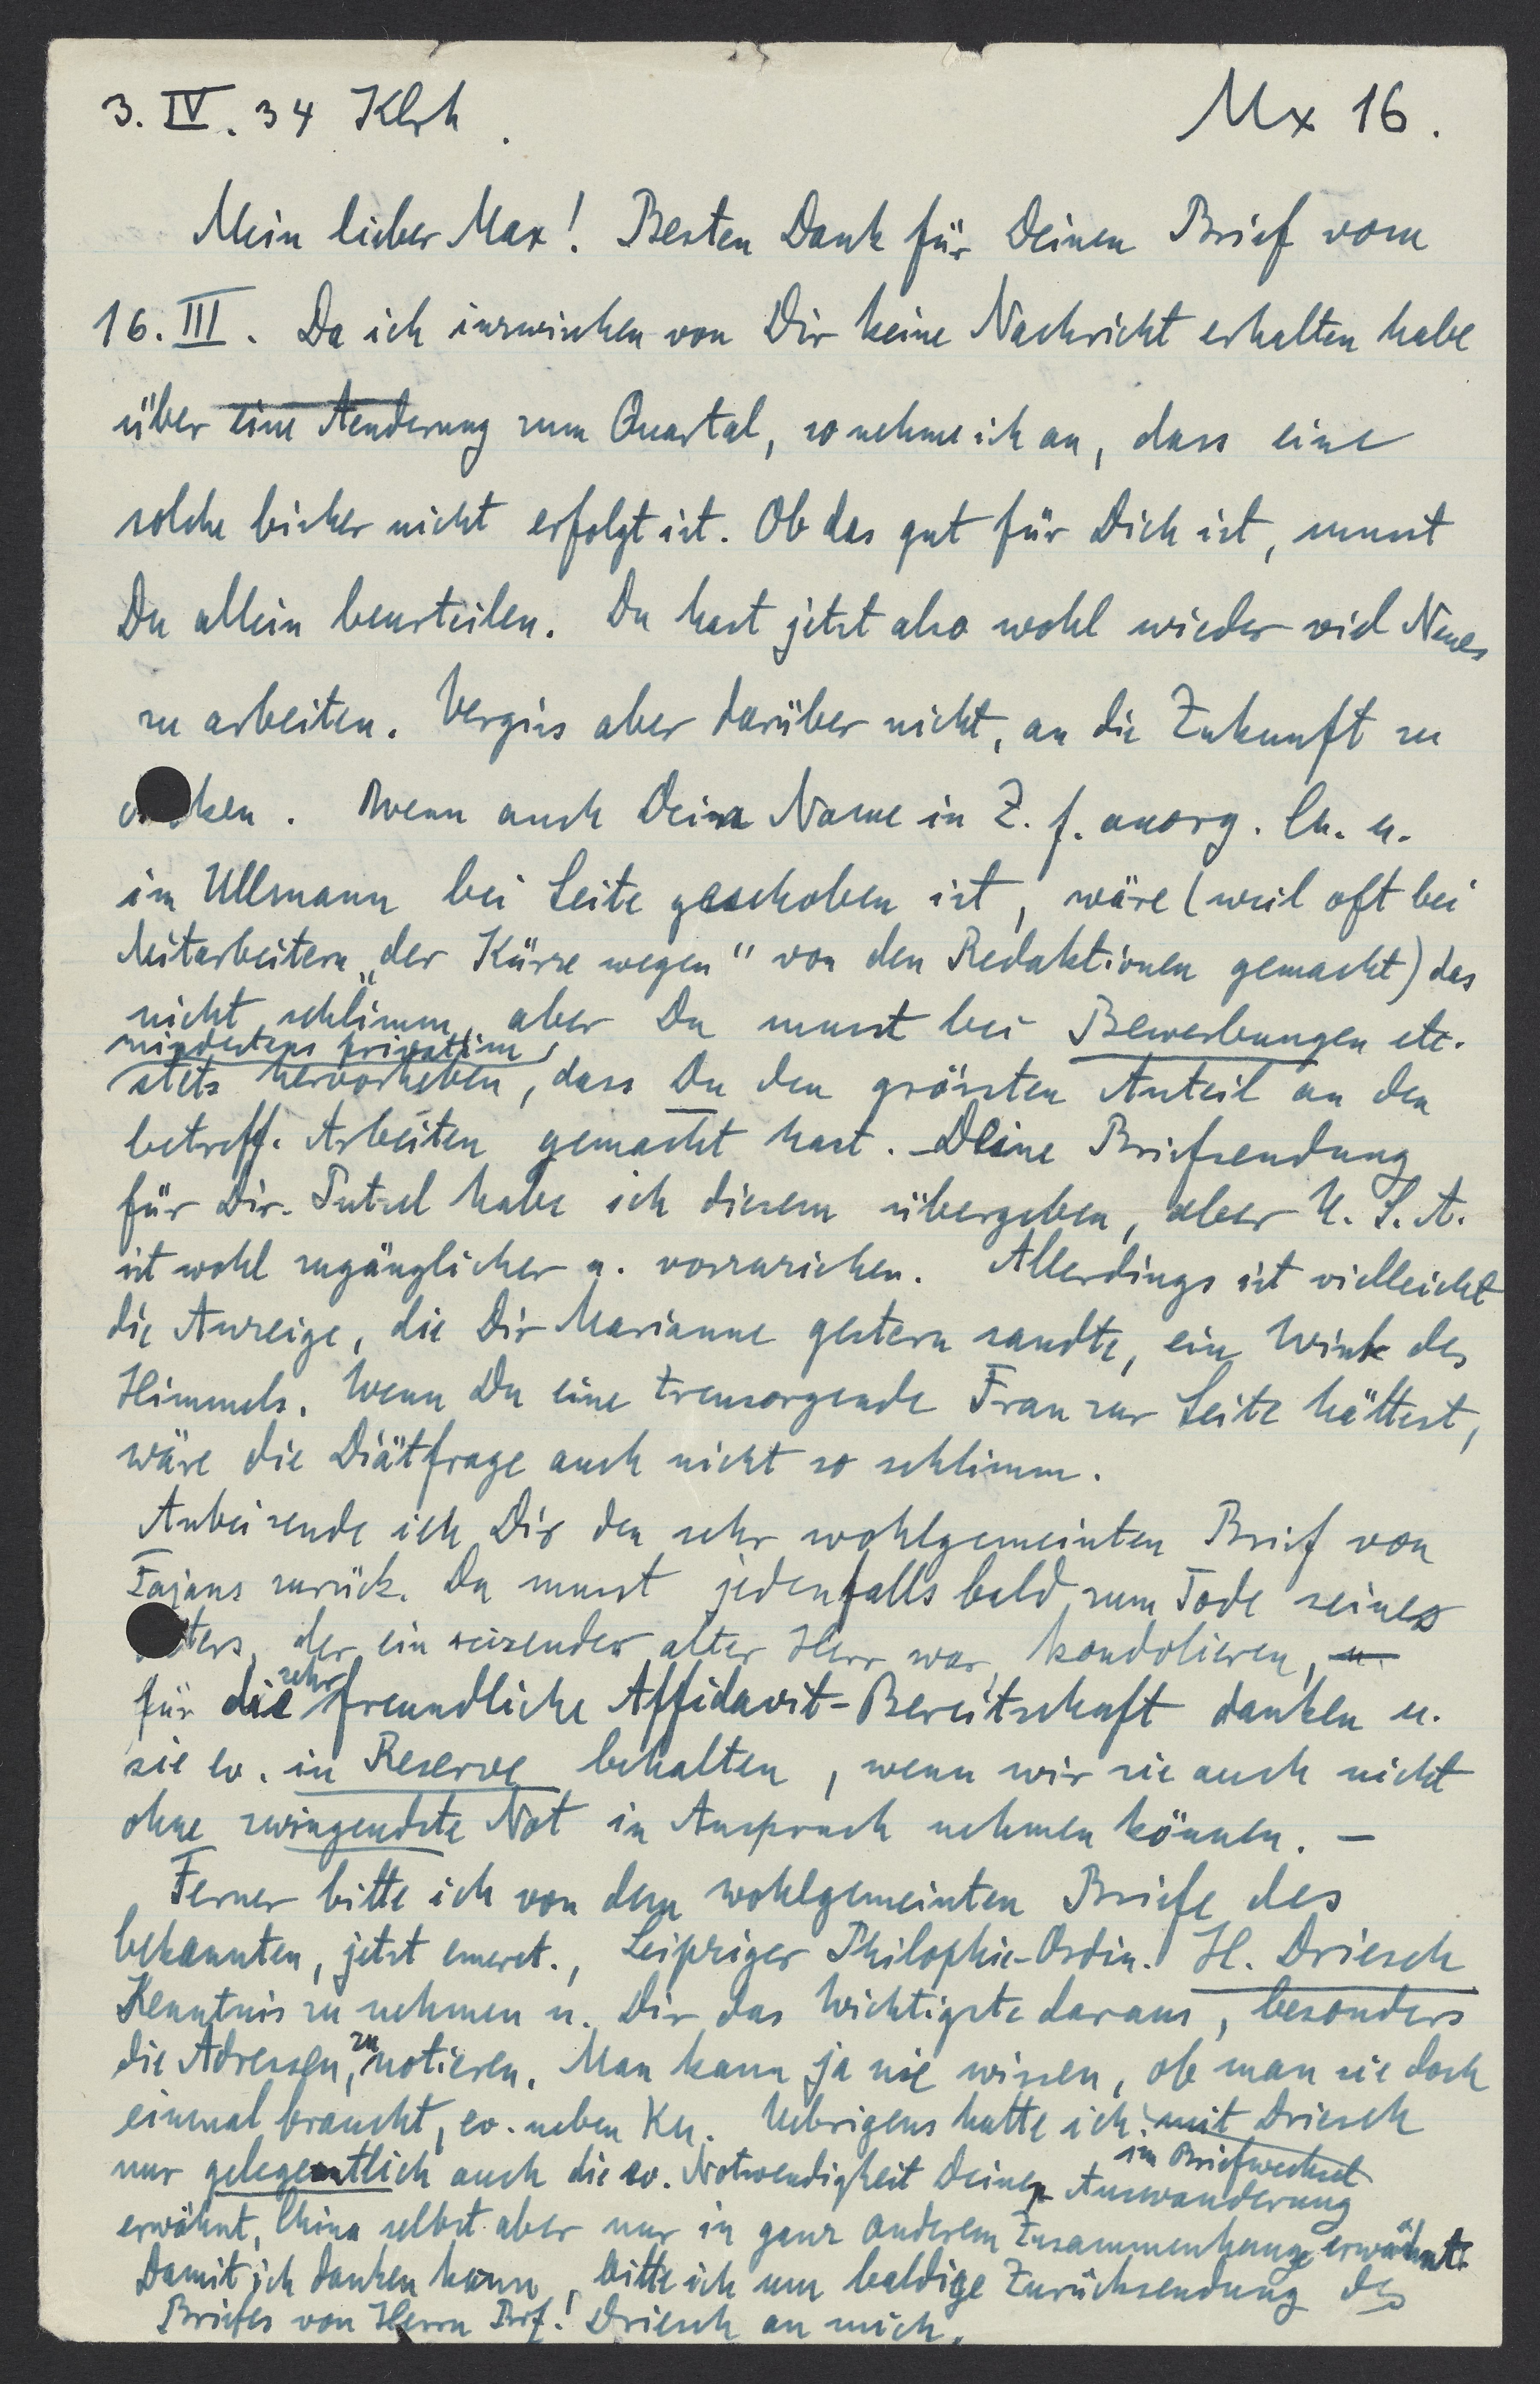 3. IV. 34 Klrh.
Mx 16.
Mein lieber Max! Besten Dank für Deinen Brief vom
16. III. Da ich inzwischen von Dir keine Nachricht erhalten habe
über eine Aenderung zum Quartal, so nehme ich an, dass eine
solche bisher nicht erfolgt ist. Ob das gut für Dich ist, musst
Du allein beurteilen. Du hast jetzt also wohl wieder viel Neues
zu arbeiten. Vergiss aber darüber nicht, an die Zukunft zu
ken. Wenn auch Dein Name in Z. f. anorg. Ch. u.
im Ullmann bei Seite geschoben ist, wäre (weil oft bei
Mitarbeitern „der Kürze wegen" von den Redaktionen gemacht) das
nicht schlimm, aber Du musst bei Bewerbungen etc.
mindestens privatim
stets hervorheben, dass Du den grössten Anteil an den
betreff. Arbeiten gemacht hast. – Deine Briefsendung
für Dir. Putzel habe ich diesem übergeben, aber U. S. A.
ist wohl zugänglicher u. vorzuziehen. Allerdings ist vielleicht
die Anzeige, die Dir Marianne gestern sandte, ein Wink des
Himmels. Wenn Du eine treusorgende Frau zur Seite hättest,
wäre die Diätfrage auch nicht so schlimm.
Anbei sende ich Dir den sehr wohlgemeinten Brief von
Fajans zurück. Du musst jedenfalls bald zum Tode seines
ters, der ein reizender alter Herr war, kondolieren, u.
für die sehr freundliche Affidavit-Bereitschaft danken u.
sie ev. in Reserve behalten, wenn wir sie auch nicht
ohne zwingendste Not in Anspruch nehmen können. –
Ferner bitte ich von dem wohlgemeinten Briefe des
bekannten, jetzt emeret., Leipziger Philophie-Ordin. H. Driesch
Kenntnis zu nehmen u. Dir das Wichtigste daraus, besonders
die Adressen, zu notieren. Man kann ja nie wissen, ob man sie doch
einmal braucht, ev. neben Ku. Uebrigens hatte ich mit Driesch
im Briefwechsel
nur gelegentlich auch die ev. Notwendigkeit Deiner Auswanderung
erwähnt, China selbst aber nur in ganz anderem Zusammenhange erwähnt.
Damit ich danken kann, bitte ich um baldige Zurücksendung des
Briefes von Herrn Prf. Driesch an mich.